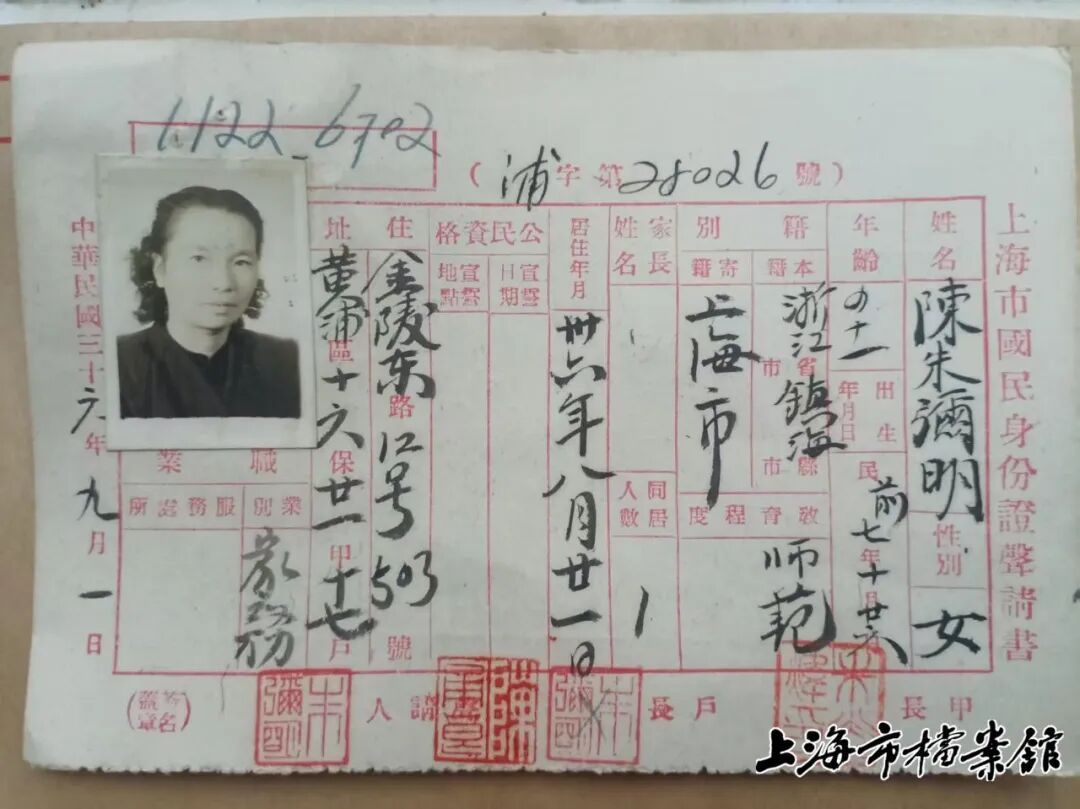 1122 6702
(浦字第28026號)
上海市國民身份證聲請書
姓名 陳朱彌明
性別 女
年齡 四十一
出生年月日 民前七年十月廿六
籍別
本籍 浙江省鎮海縣市
市
寄籍 上海市
教育程度 師範
家長姓名
同居人數 1
居住年月 卅六年八月廿一日
公民資格
宣誓日期
宣誓地點
住址
金陵东路12号503號
黄浦區十六保廿一甲十七戶
職業
業別 家務
服務處所
中華民國三十六年九月一日
甲長
戶長
請人
(簽名蓋章)
朱彌明
上海市檔案館